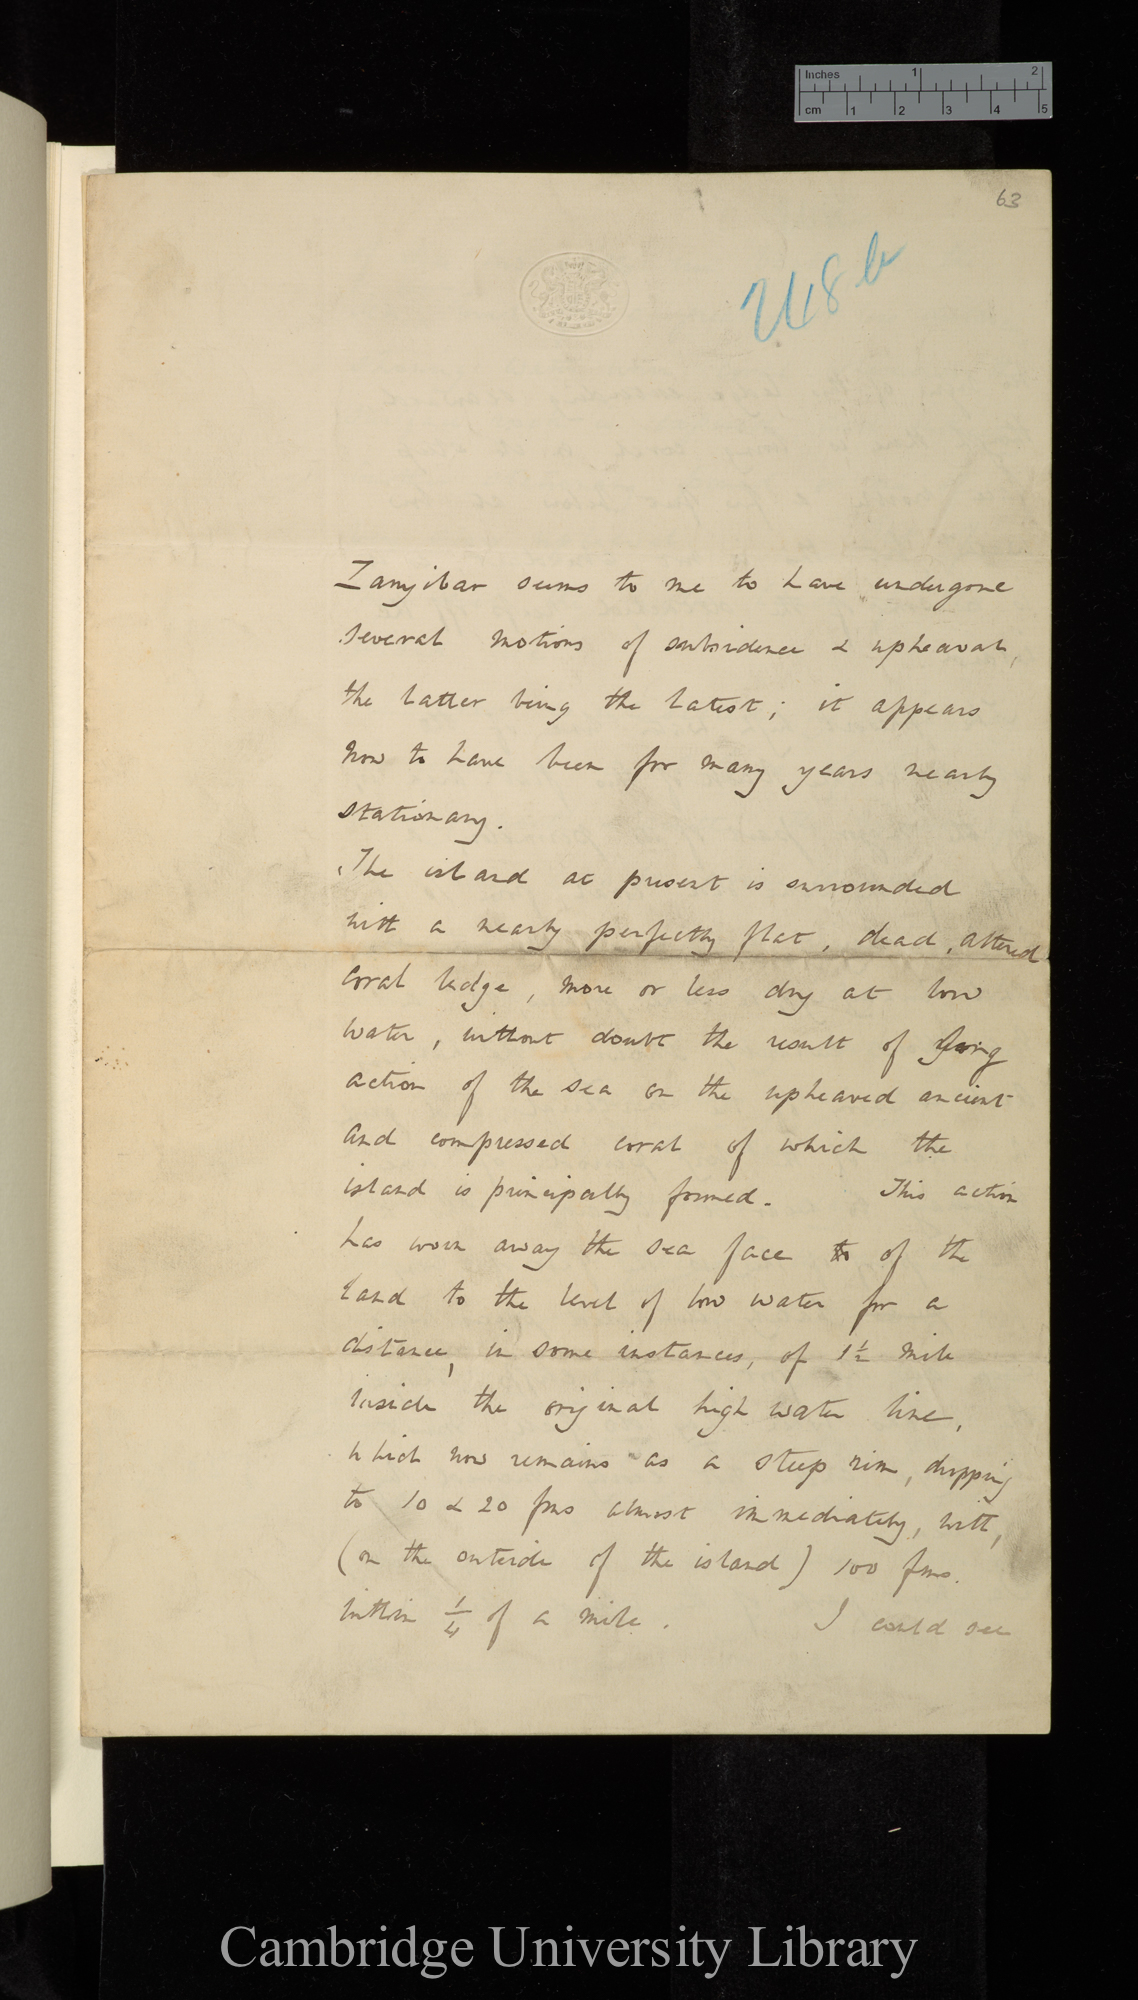 Inches 1 2
cm 1 2 3 4 5
63
248 b
Zanzibar seems to me to have undergone
several motions of subsidence & upheaval,
the latter being the latest; it appears
now to have been for many years nearly
stationary.
The island at present is surrounded
with a nearly perfectly flat, dead, altered
coral ledge, more or less dry at low
water, without doubt the result of
action of the sea on the upheaved ancient
and compressed coral of which the
island is principally formed. This action
has worn away the sea face to of the
land to the level of low water for a
distance, in some instances, of 1½ mile
inside the original high water line,
which now remains as a steep rim, dropping
to 10 & 20 fms almost immediately, with,
(on the outside of the island) 100 fms.
within ¼ of a mile. I could see
Cambridge University Library